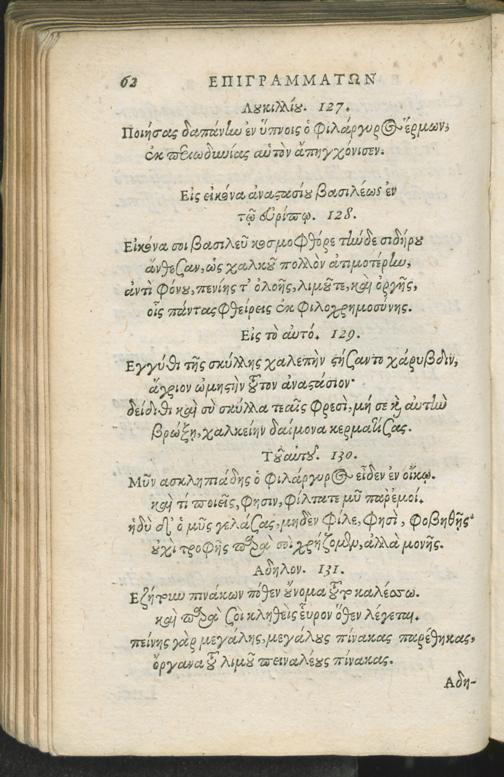 62 ΕΠΙΓΡΑΜΜΑΤΩΝ
Λυκιλλίου. 127.
Ποιήσας δαπάνην ἐν ὕπνοις ὁ φιλάργυρος ἕρμων,
ἐκ περιωδυνίας αὑτὸν ἀπηγχόνισεν.
Εἰς εἰκόνα ἀναστασίου βασιλέως ἐν
τῷ εὐρίπῳ. 128.
Εἰκόνα σοι βασιλεῦ κοσμοφθόρε τήνδε σιδήρου
ἄνθεσαν, ὡς χαλκοῦ πολλὸν ἀτιμοτέρην,
ἀντὶ φόνου, πενίης τ' ὀλοῆς, λιμοῦ τε, καὶ ὀργῆς,
οἷς πάντας φθείρεις ἐκ φιλοχρημοσύνης.
Εἰς τὸ αὐτό. 129.
Εγγύθι τῆς σκύλλης χαλεπὴν στήσαντο χάρυβδιν,
ἄγριον ὠμηστὴν τοῦτον ἀναστάσιον·
δείδιθι καὶ σὺ σκύλλα τεαῖς φρεσὶ, μή σε καὶ αὐτὴν
βρώξῃ, χαλκείην δαίμονα κερματίσας.
Τοῦ αὐτοῦ. 130.
Μῦν ἀσκληπιάδης ὁ φιλάργυρος εἶδεν ἐν οἴκῳ.
καὶ τί ποιεῖς, φησιν, φίλτατε μῦ παρ' ἐμοί.
ἡδὺ δ' ὁ μῦς γελάσας, μηδὲν φίλε, φησὶ, φοβηθῇς·
οὐχὶ τροφῆς παρὰ σοὶ χρῄζομεν, ἀλλὰ μονῆς.
Αδηλον. 131.
Εζήτουν πινάκων πόθεν οὔνομα τοῦτο καλέσσω.
καὶ παρὰ σοὶ κληθεὶς εὗρον ὅθεν λέγεται.
πείνης γὰρ μεγάλης, μεγάλους πίνακας παρέθηκας,
ὄργανα τοῦ λιμοῦ πειναλέους πίνακας.
Αδη-